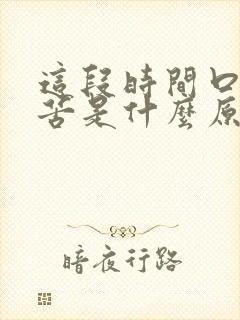 這段時間口
苦是什麼原
暗夜行路